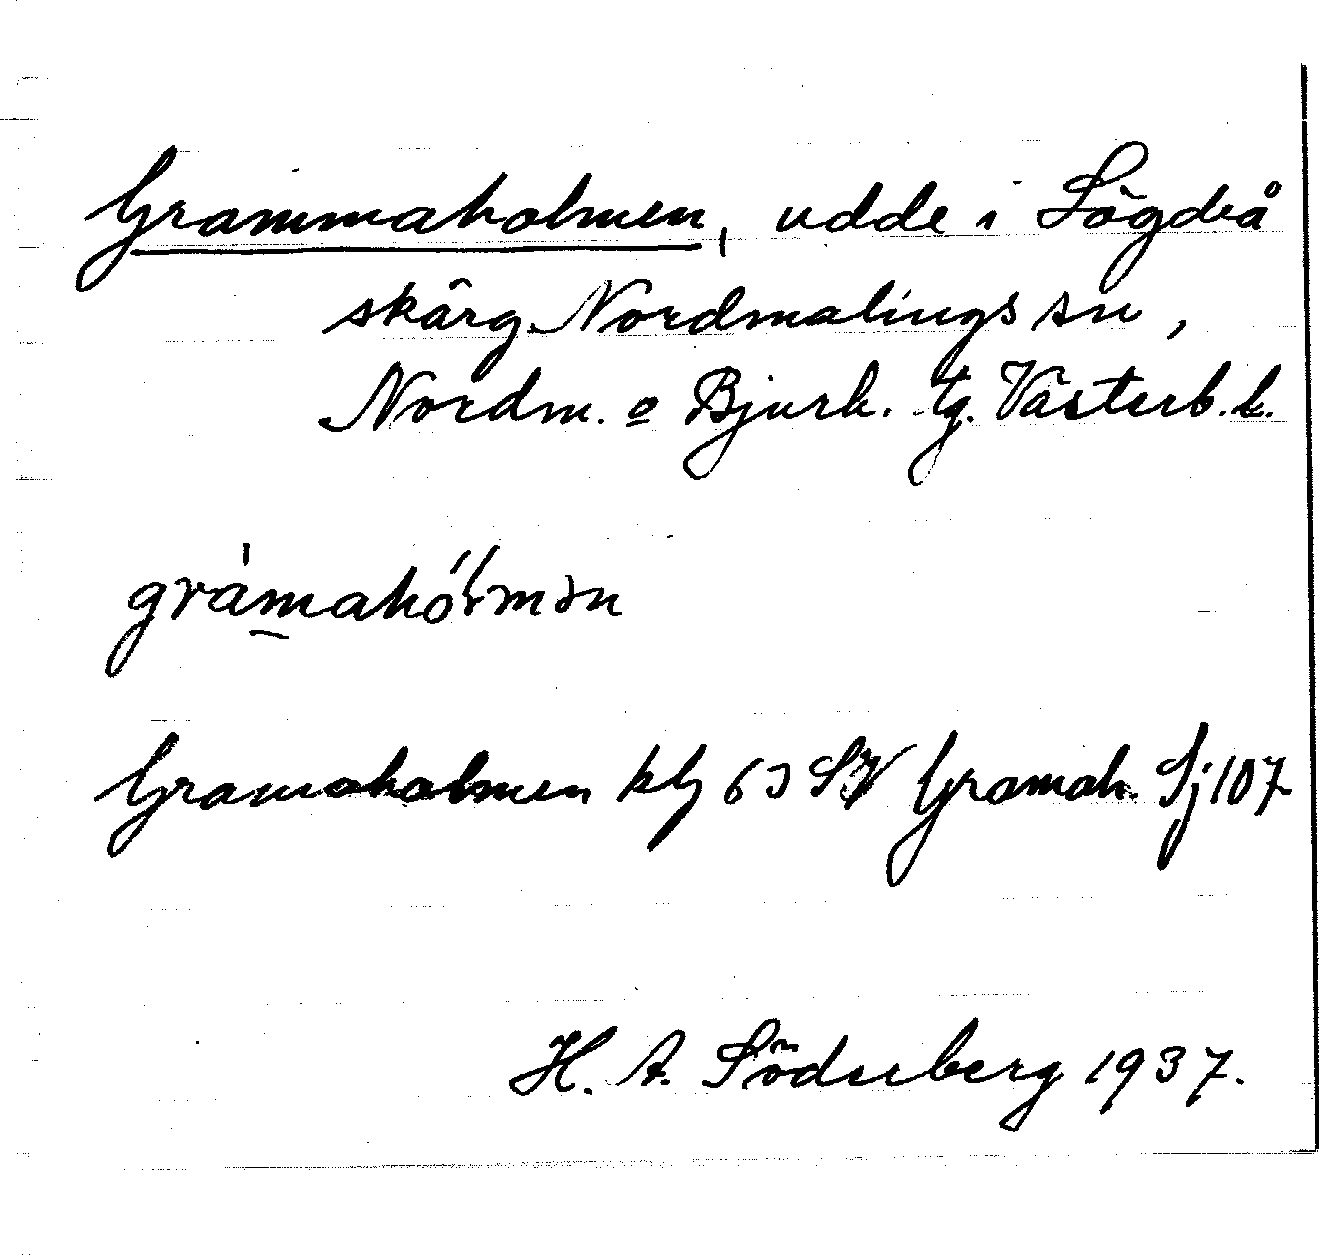 Grammaholmen, udde i Lögdeå
skärg. Nordmalings sn,
Nordm. o Bjurh. tg. Västerb. l.
grámahólmən
Gramaholmen kbl 63 SV Gramah. Sj 107
H. A. Söderberg 1937.